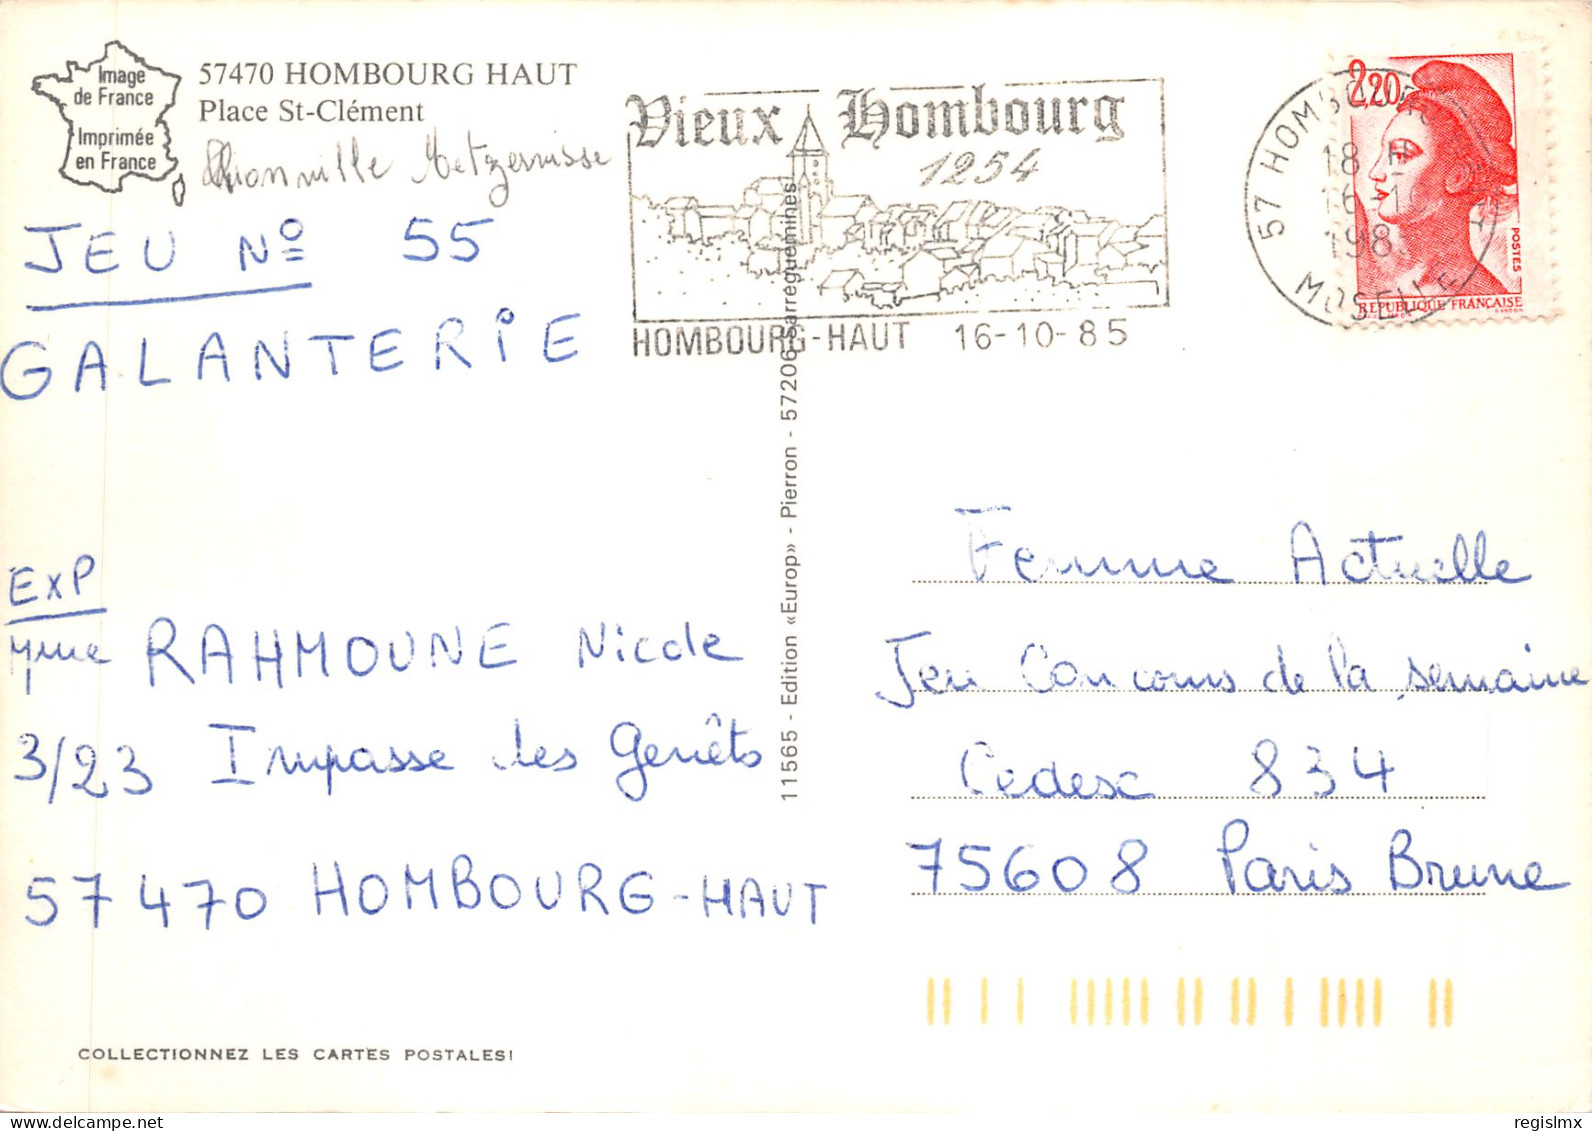 Image
de France
Imprimée
en France
57470 HOMBOURG HAUT
Place St-Clément
Thionville Metzervisse
JEU Nº 55
GALANTERIE
EXP
Mme RAHMOUNE Nicole
3/23 Impasse des Genêts
57470 HOMBOURG-HAUT
COLLECTIONNEZ LES CARTES POSTALES!
11565 - Edition «Europ» - Pierron - 57206 Sarreguemines
Vieux Hombourg
1254
HOMBOURG-HAUT 16-10-85
57 HOMBOURG
18 H
16-10
1985
MOSELLE
2,20
POSTES
REPUBLIQUE FRANÇAISE
Femme Actuelle
Jeu Concours de la semaine
Cedex 834
75608 Paris Brune
regislmx